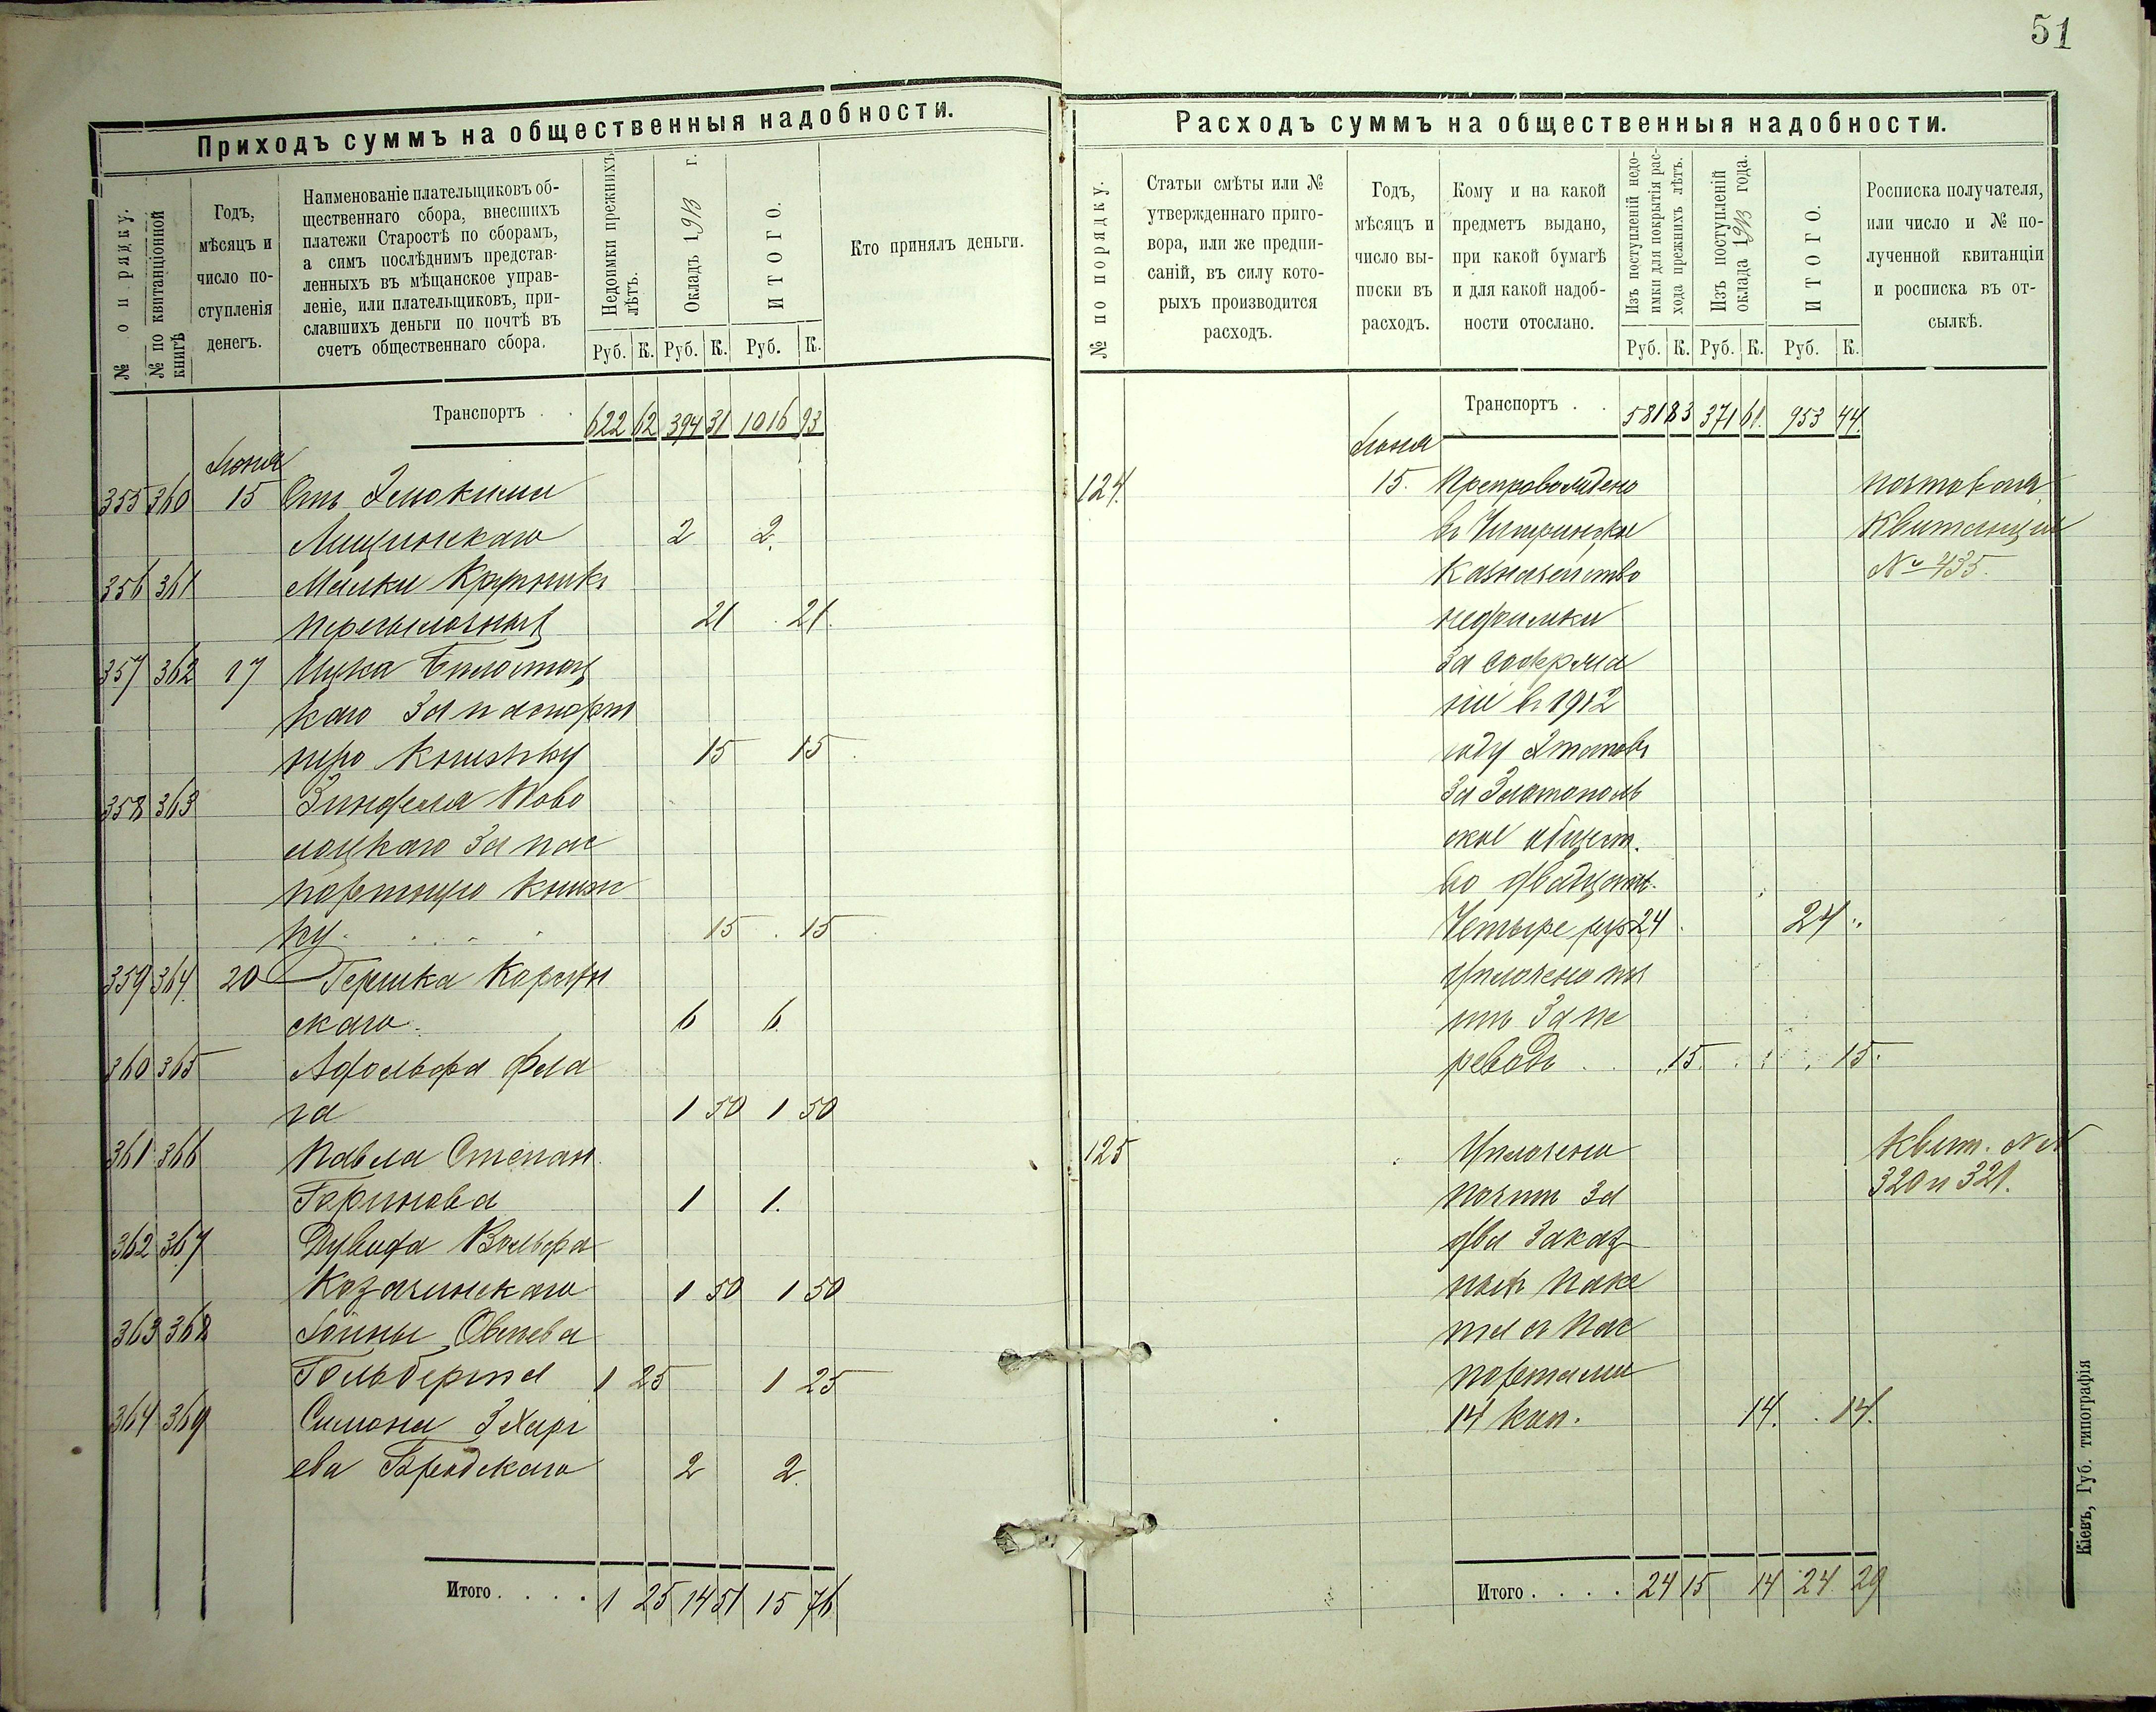 51
Приходъ суммъ на общественныя надобности.
№ по порядку.
№ по квитанціонной книгѣ
Годъ, мѣсяцъ и число поступленія денегъ.
Наименованіе плательщиковъ об-
щественнаго сбора, внесшихъ
платежи Старостѣ по сборамъ,
а симъ послѣднимъ представ-
ленныхъ въ мѣщанское управ-
леніе, или плательщиковъ, при-
славшихъ деньги по почтѣ въ
счетъ общественнаго сбора.
Недоимки прежнихъ лѣтъ.
Окладъ 1913 г.
ИТОГО.
Кто принялъ деньги.
Руб. К. Руб. К. Руб. К.
Транспортъ . . 622 62 394 31 1016 93
Іюня
355 360 15 Отъ
2 2.
356 361
21 . 21.
357 362 17 Ицка Билоцтоц
каго За паспорт
ную книжку 15 15
358 363
За пас
портную книж
ку 15 . 15
359 364. 20 Гершка Корсун
скаго. 6 6.
360 365 Адольфа
1 50 1 50
361 366 Павла Степан
1 1.
362 367 Дувида Вольфа
Козачинскаго 1 50 1 50
363 368
1 25 1 25
364 369 Симона
ева Бродскаго 2 2.
Итого . . . . 1 25 14 51 15 76
Расходъ суммъ на общественныя надобности.
№ по порядку.
Статьи смѣты или №
утвержденнаго приго-
вора, или же предпи-
саній, въ силу кото-
рыхъ производится
расходъ.
Годъ,
мѣсяцъ и
число вы-
писки въ
расходъ.
Кому и на какой
предметъ выдано,
при какой бумагѣ
и для какой надоб-
ности отослано.
Изъ поступленій недо-
имки для покрытія рас-
хода прежнихъ лѣтъ.
Изъ поступленій
оклада 1913 года.
ИТОГО.
Росписка получателя,
или число и № по-
лученной квитанціи
и росписка въ от-
сылкѣ.
Руб. К. Руб. К. Руб. К.
Транспортъ . . 581 83 371 61. 953 44.
Іюня
124. 15. Препровождено почтовая
въ Чигиринское квитанція
Казначейство № 435.
недоимки
За содержа
ніе въ 1912
году этаповъ
За Златополь
ское общест.
во двадцать
Четыре руб 24 . 24 .
Уплочено поч
тѣ За пе
реводъ . . 15. . 15.
125 Уплочено Квит. №№
почтѣ За 320 и 321.
два заказ
ныхъ паке
та съ пас
портами
14 коп. 14. . 14.
Итого . . . . 24 15 14 24 29
Кіевъ, Губ. типографія